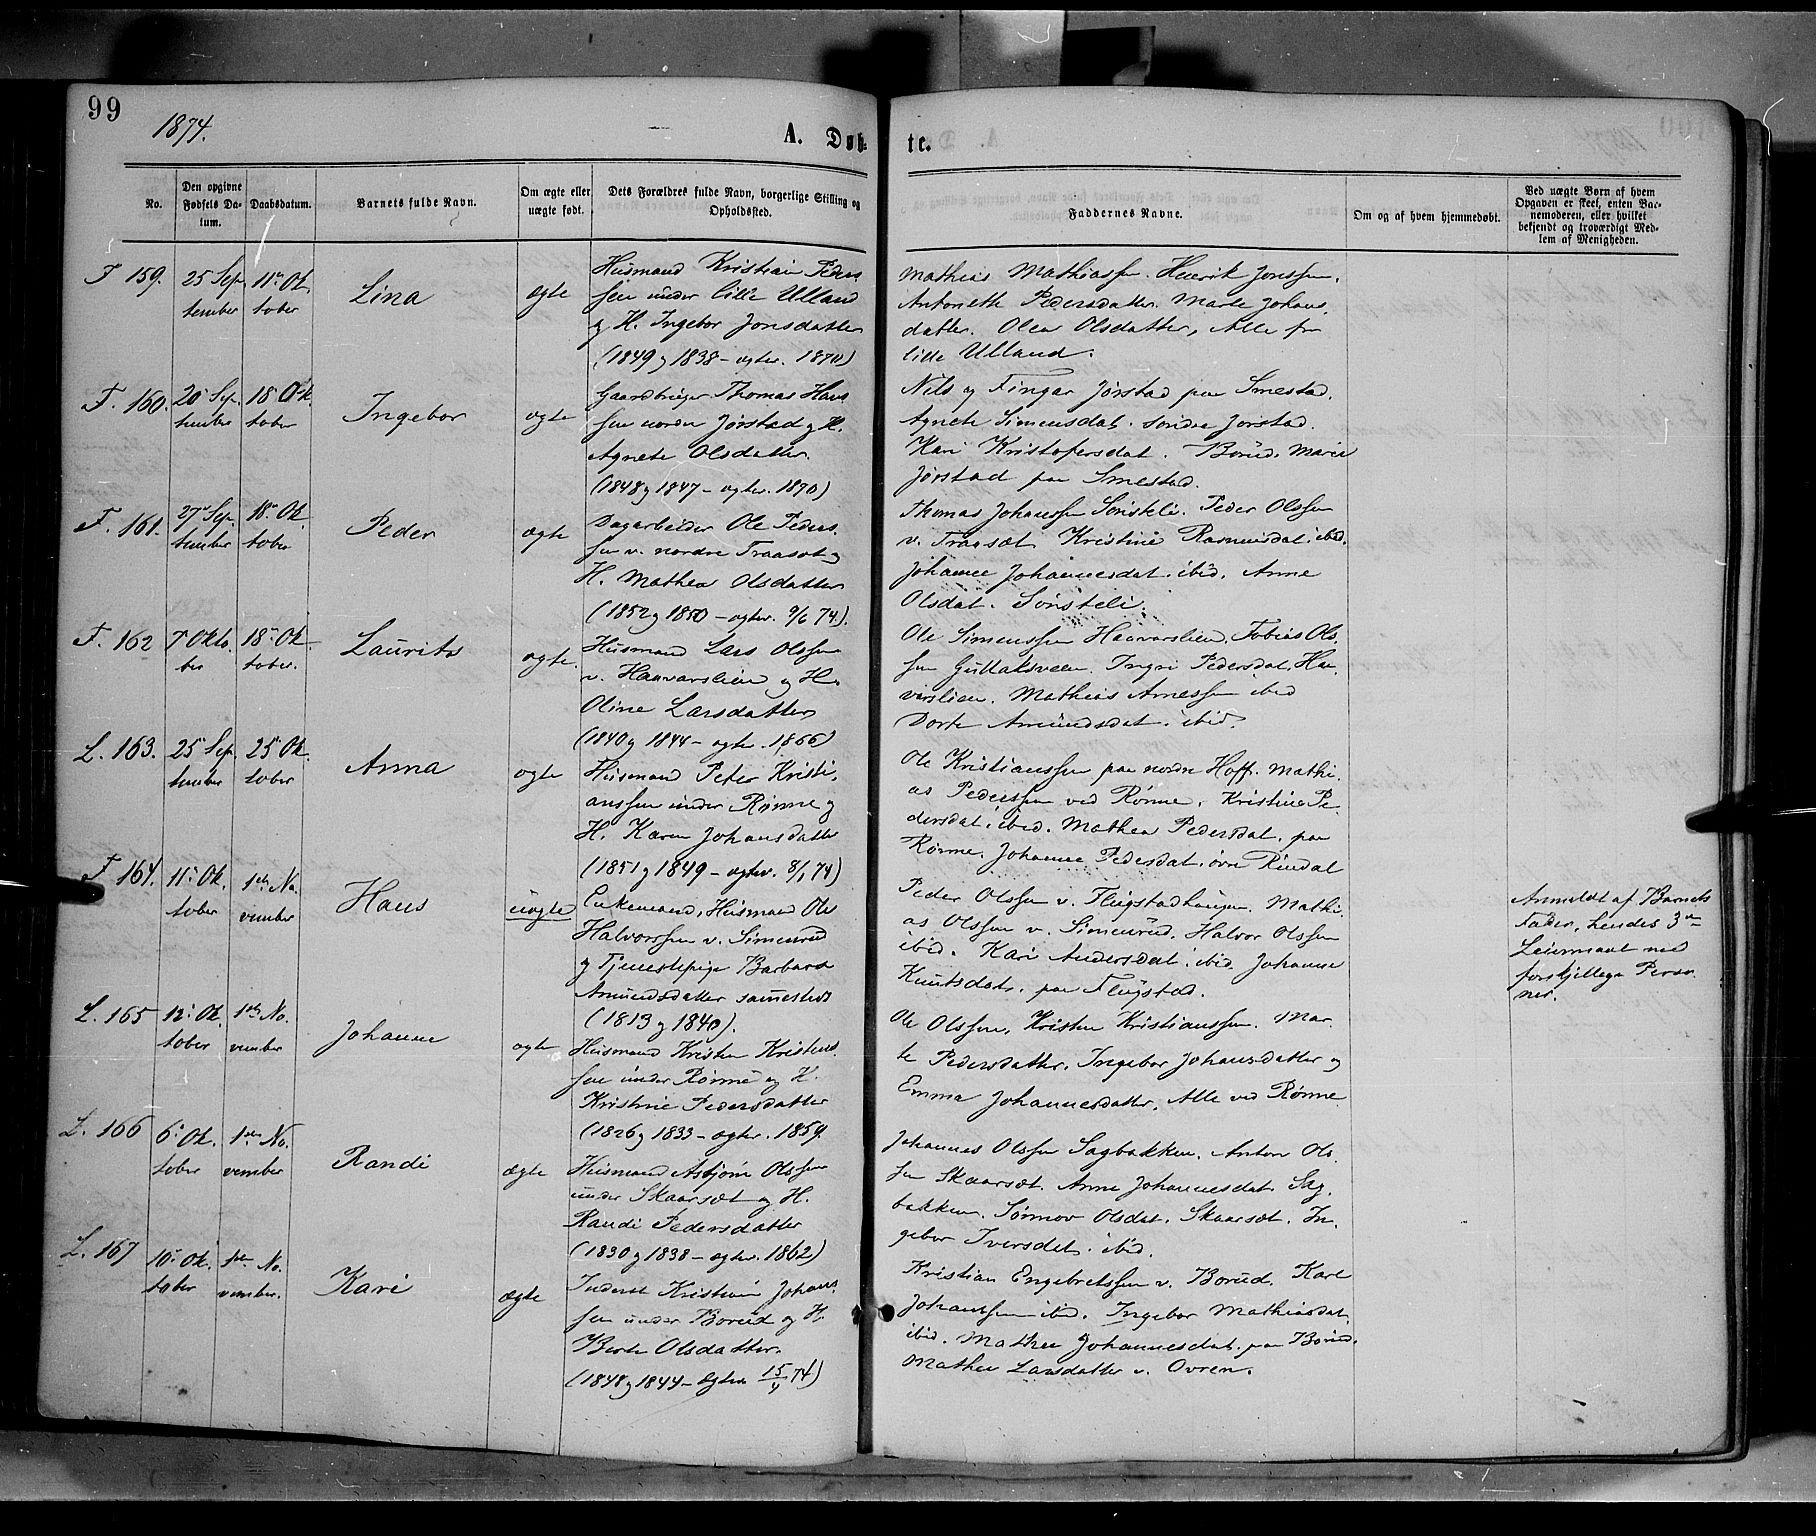 99
1874.
A. Døb-
te.
No.
Den opgivne Fødsels Da-tum.
Daabsdatum.
Barnets fulde Navn.
Om ægte eller uægte født.
Dets Forældres fulde Navn, borgerlige Stilling og Opholdssted.
Faddernes Navne.
Om og af hvem hjemmedøbt.
Ved uægte Børn af hvem Opgaven er skeet, enten Bar-nemoderen, eller hvilket bekjendt og troværdigt Med-lem af Menigheden.
F 159.
25 Sep-
tember
11te Ok-
tober
Lina
ægte
Husmand Kristian Peders-
sen under lille Ulland
og H. Ingebor Jonsdatter
(1849 og 1838 – ægtev. 1870)
Mathias Mathiassen. Henrik Jonssen.
Antonette Pedersdatter. Marte Johans-
datter. Olea Olsdatter, Alle fra
lille Ulland.
F. 160.
20 Sep-
tember
18 Ok-
tober
Ingebor
ægte
Gaardbruger Thomas Hans-
sen nordre Jørstad og H.
Agnete Olsdatter.
(1848 og 1847 – ægtev. 1870)
Nils og Fingar Jørstad paa Smestad.
Agnete Simensdat. søndre Jørstad.
Kari Kristofersdat. Borud. Marie
Jørstad paa Smestad.
F. 161.
27 Sep-
tember
18 Ok-
tober
Peder
ægte
Dagarbeider Ole Peders-
sen v. nordre Traasæt og
H. Mathea Olsdatter
(1852 og 1850 – ægtev. 9/6 74).
Thomas Johanssen Sønsteli. Peder Olssen
v. Traasæt Kristine Rasmusdat. ibid.
Johanne Johannesdat. ibid. Anne
Olsdat. Sønsteli.
F. 162
7 Okto-
ber
18 Ok-
tober.
Laurits
ægte.
Husmand Lars Olssen
v. Haavarslien og H.
Oline Larsdatter
(1840 og 1844 – ægtev. 1866)
Ole Simenssen Haavarslien. Tobias Ols-
sen Gullaksveen. Ingri Pedersdat. Haa-
varslien. Mathias Arnessen ibid
Dorte Amundsdat. ibid.
L. 163.
25 Sep-
tember
25 Ok-
tober
Anna
ægte
Husmand Peter Kristi-
anssen under Rønne og
H. Karen Johansdatter
(1851 og 1849 – ægtev. 8/1 74)
Ole Kristianssen paa nordre Hoff. Mathi-
as Pederssen ved Rønne. Kristine Pe-
dersdat. ibid. Mathea Pedersdat. paa
Rønne. Johanne Pedersdat. øvre Rindal
F. 164.
11 Ok-
tober
1ste No-
vember
Hans
uægte
Enkemand, Husmand Ole
Halvorssen v. Simenrud
og Tjenestepige Barbara
Amundsdatter sammesteds
(1813 og 1840).
Peder Olssen v. Flugstadhaugen. Mathi-
as Olssen v. Simenrud. Halvor Olssen
ibid. Kari Andersdat. ibid Johanne
Knutsdat. paa Flugstad.
Anmeldt af Barnets
Fader, hendes 3die
Leiermaal med
forskjellige Perso-
ner.
L. 165
12 Ok-
tober
1ste No-
vember
Johanne
ægte
Husmand Kristen Kristens-
sen under Rønne og H.
Kristine Pedersdatter
(1826 og 1833 – ægtev. 1859.
Ole Olssen, Kristen Kristianssen. Mar-
te Pedersdatter. Ingebor Johansdatter og
Emma Johannesdatter, Alle ved Rønne
L. 166
6 Ok-
tober
1ste No-
vember
Randi
ægte
Husmand Asbjørn Olssen
under Skaarsæt og H.
Randi Pedersdatter
(1830 og 1838 – ægtev. 1862)
Johannes Olssen Sagbakken. Anton Ols-
sen Skaarsæt. Anne Johannesdat. Sag-
bakken. Sørnov Olsdat. Skaarsæt. In-
gebor Iversdat. ibid.
L. 167
10 Ok-
tober
1ste No-
vember.
Kari
ægte
Inderst Kristian Johans-
sen under Borud og H.
Berte Olsdatter.
(1848 og 1844 – ægtev. 15/4 74)
Kristian Engebretssen v. Borud. Karl
Johanssen ibid. Ingebor Mathiasdat.
ibid. Mathea Johannesdat. paa Borud.
Mathea Larsdatter v. Ovren.